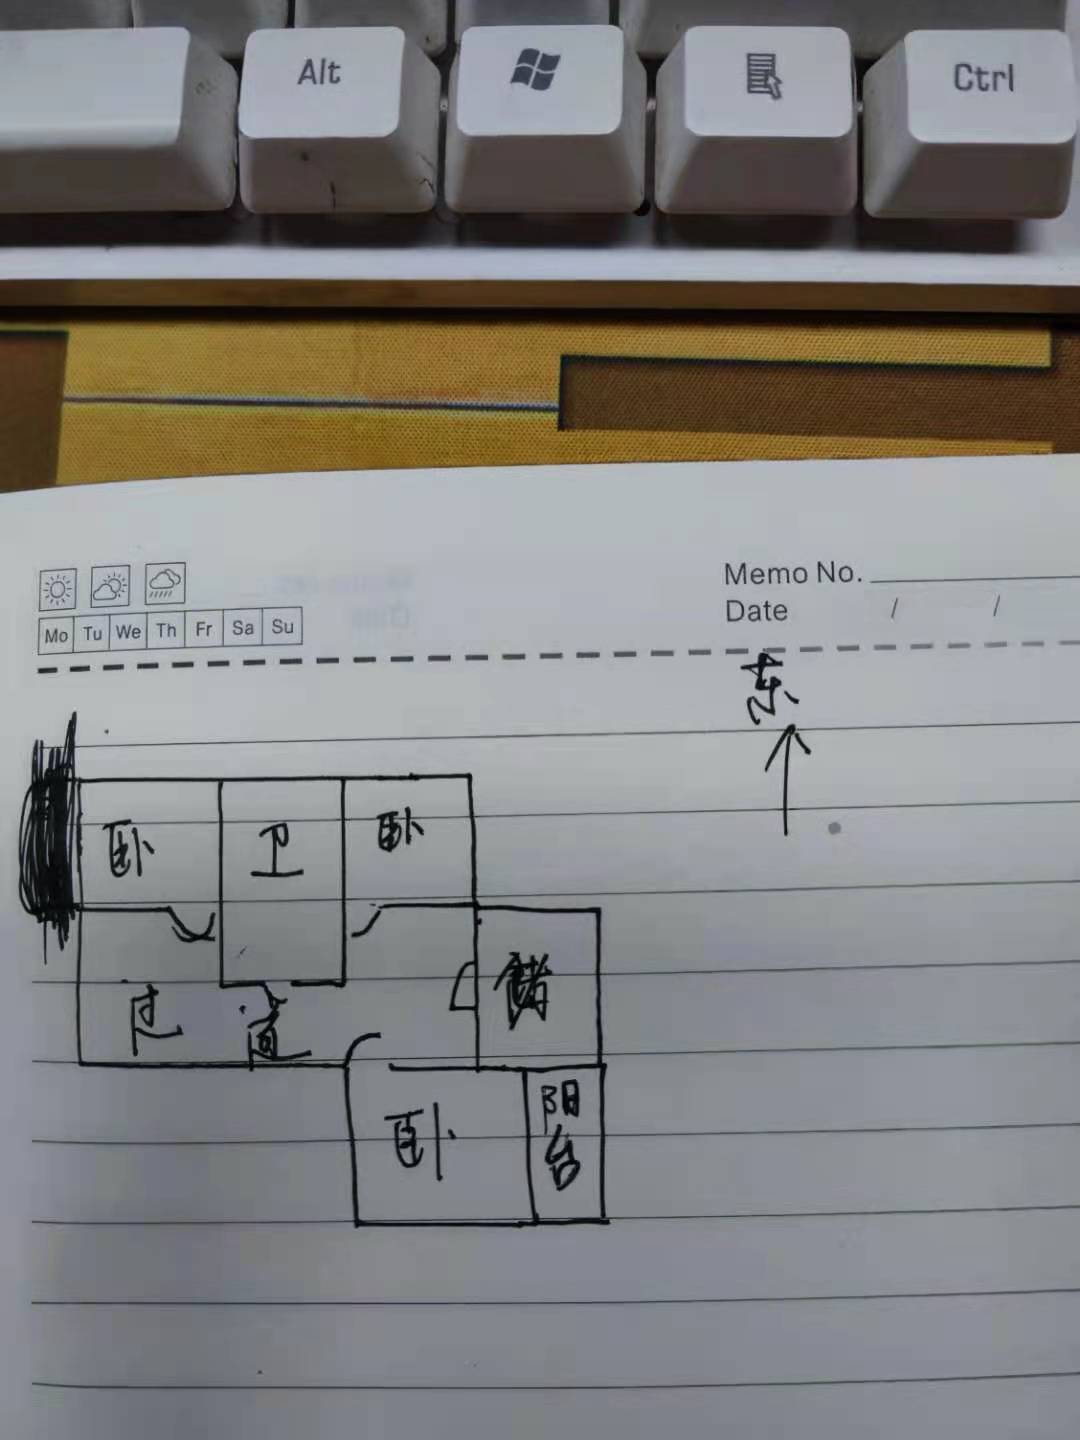 Alt
Ctrl
Memo No.
Date / /
Mo Tu We Th Fr Sa Su
东
卧 卫 卧
储
过道
卧
阳台